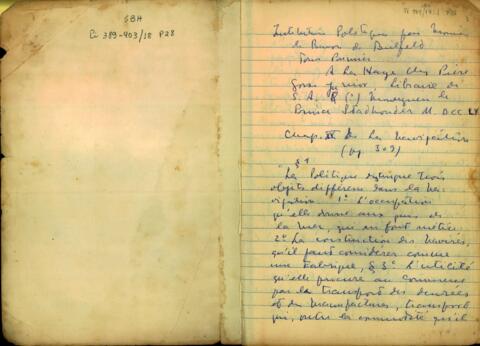 SBH
Pi 389-403/18 P28
Institutions Politiques par Monsieur
le Baron de Bielfeld
Tome Premier
A La Haye Chez Pierre
Gosse Junior, Libraire de
S. A. R. Monseigneur le
Prince Stadhouder M. DCC LX
Chap. XV De La Navigation
(pg 309)
§ 1
"La Politique distingue trois
objets différens dans la Na-
vigation 1º L'occupation
qu'elle donne aux gens de
la mer, qui en font métier.
2º La construction des Navires,
qu'il faut considérer comme
une Fabrique, & 3º L'utilité
qu'elle procure au Commerce
par le transport des denrées
et des Manufactures, transport
qui, outre la commodité qu'il